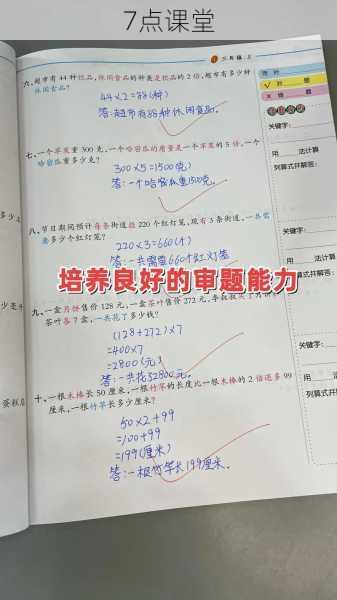 7点课堂
三年级 上
六、超市有 44 种饮品,休闲食品的种类是饮品的 2 倍,超市有多少种
休闲食品?
44×2=88(种)
答:超市有88种休闲食品。
七、一个苹果重 300 克,一个哈密瓜的质量是一个苹果的 5 倍,一个
哈密瓜重多少克?
300×5=1500(克)
答:一个哈密瓜重1500克。
八、节日期间预计每条街道挂 220 个红灯笼,现有 3 条街道,一共需
要多少个红灯笼?
220×3=660(个)
答:一共需要660个红灯笼
培养良好的审题能力
九、一盒月饼售价 128 元,一盒茶叶售价 272 元,李叔叔买了月饼和
茶叶各 7 盒,一共花了多少钱?
(128+272)×7
=400×7
=2800(元)
答:一共花2800元。
十、一根木棒长 50 厘米,一根竹竿的长度比一根木棒的 2 倍还多 99
厘米,一根竹竿长多少厘米?
50×2+99
=100+99
=199(厘米)
答:一根竹竿长199厘米。
√ 对 题
× 错 题
关键字:
用 法计算
列算式并解答:
关键字:
用
列算式并解答:
关键字:
用
列算式并
多少上
少毫升
蛋糕店